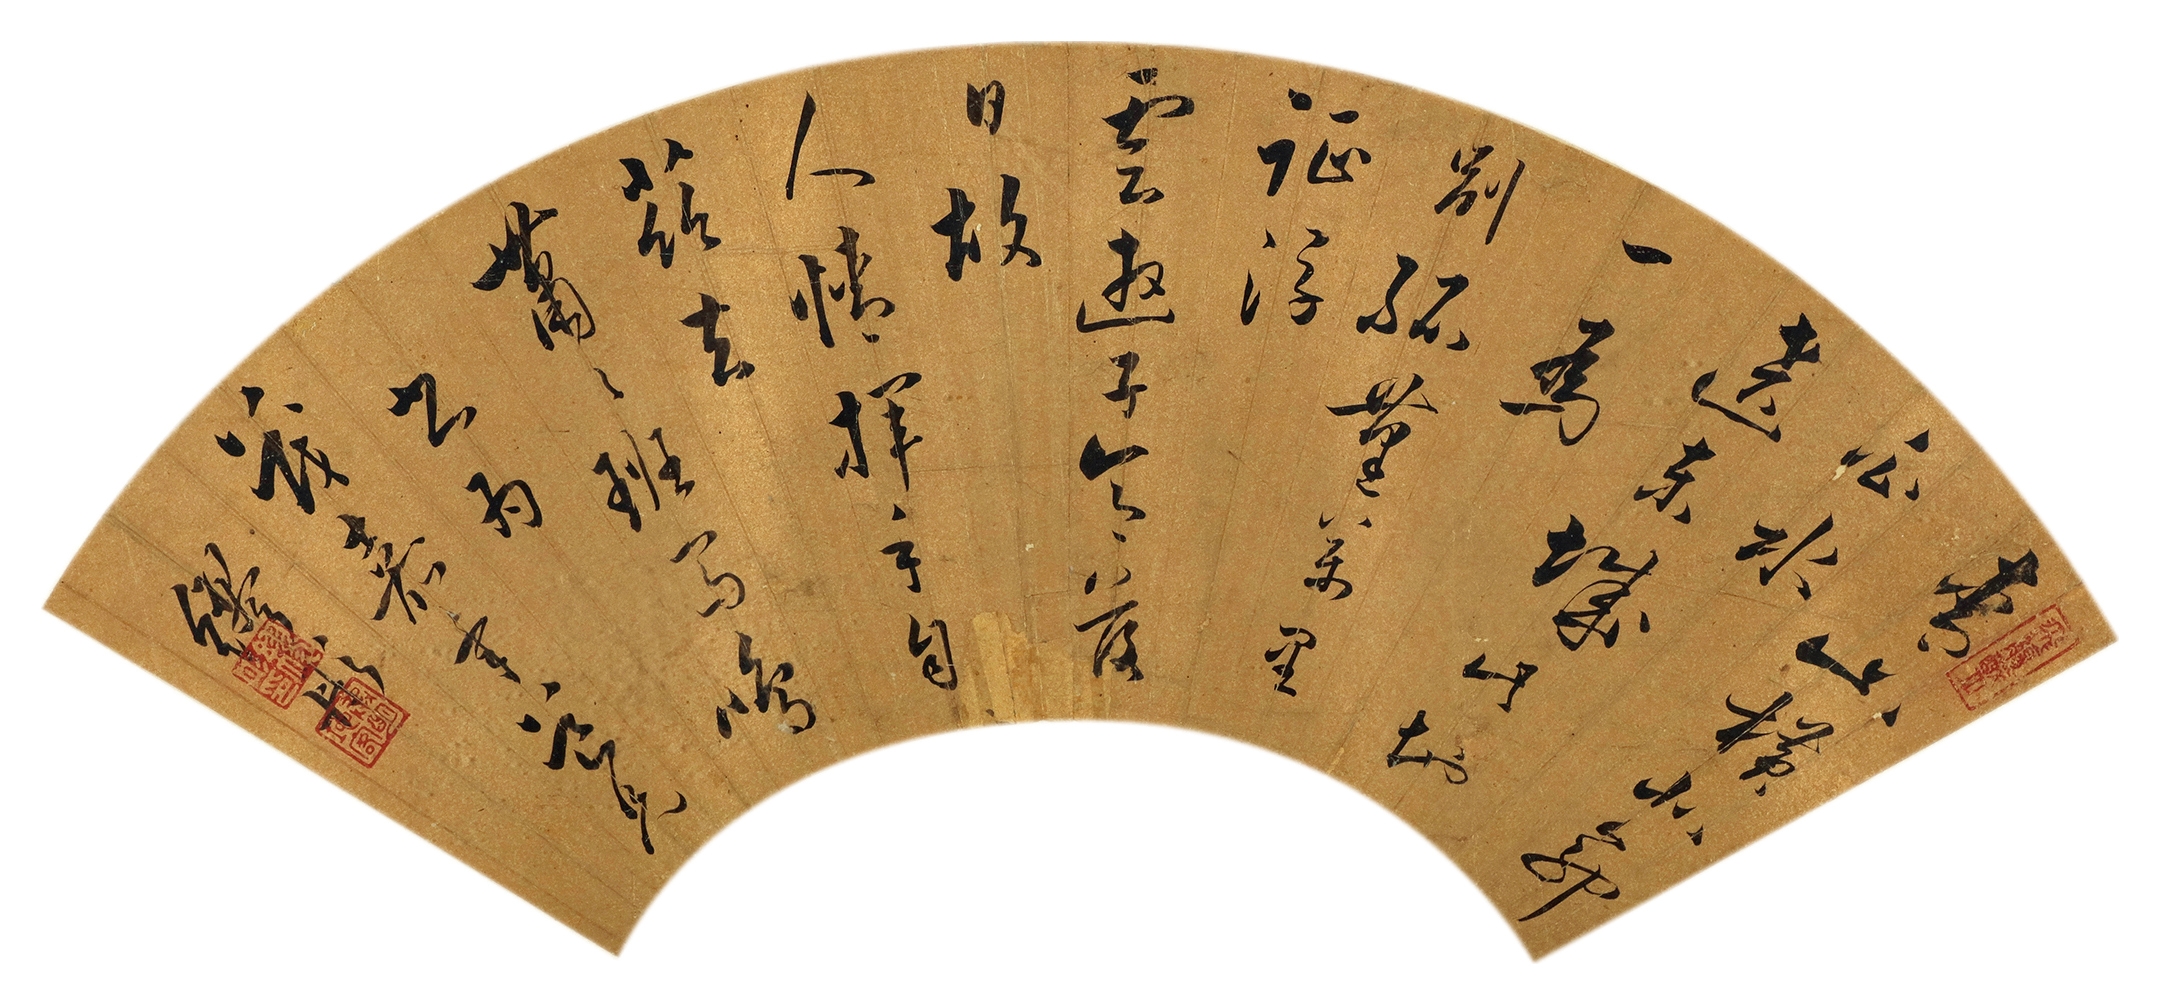 青山橫北郭
白水
遶東城此地
一為
別孤蓬萬里
征浮
雲遊子意落
日故
人情揮手自
茲去
蕭〻班馬鳴
書為